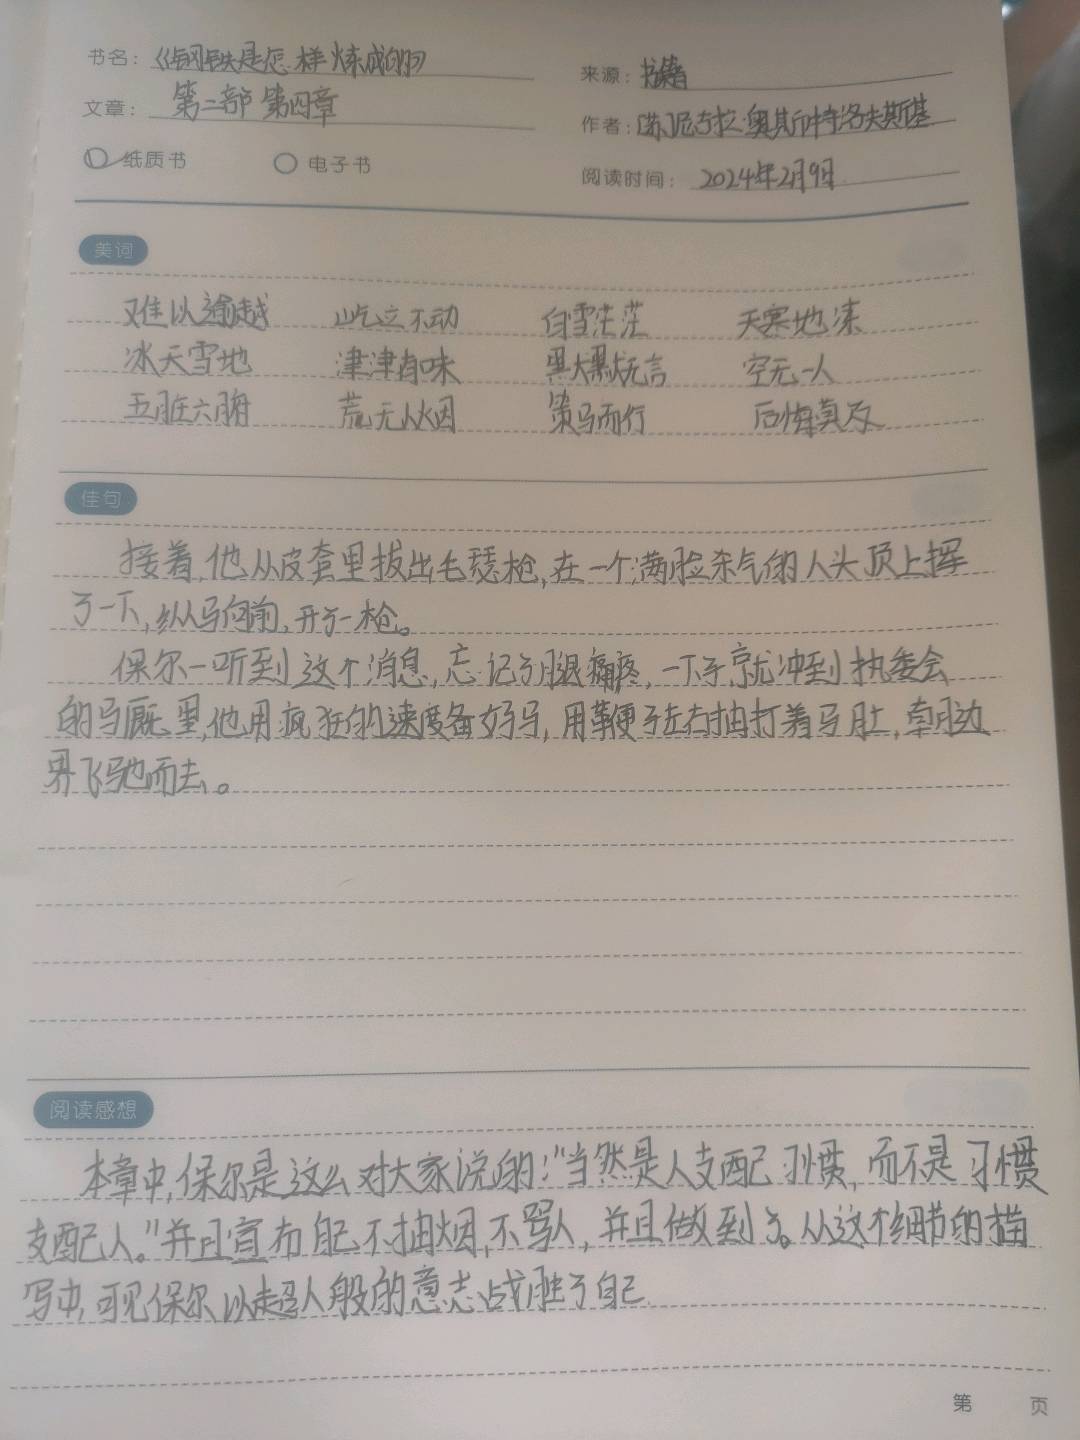 书名：《钢铁是怎样炼成的》
来源：书籍
文章：第二部 第四章
作者：[苏]尼古拉·奥斯特洛夫斯基
纸质书 电子书
阅读时间：2024年2月9日
美词
难以逾越 屹立不动 白雪茫茫 天寒地冻
冰天雪地 津津有味 默默无言 空无一人
五脏六腑 荒无人烟 策马而行 后悔莫及
佳句
接着,他从皮套里拔出毛瑟枪,在一个满脸杀气的人头顶上挥
了一下,纵马向前,开了一枪。
保尔一听到这个消息,忘记了腿痛疼,一下子就冲到执委会
的马厩里,他用疯狂的速度备好马,用鞭子左右抽打着马肚,牵边
界飞驰而去。
阅读感想
本章中,保尔是这么对大家说的:"当然是人支配习惯,而不是习惯
支配人。"并且宣布自己不抽烟,不骂人,并且做到了。从这个细节的描
写中,可见保尔以超人般的意志战胜了自己
第 页